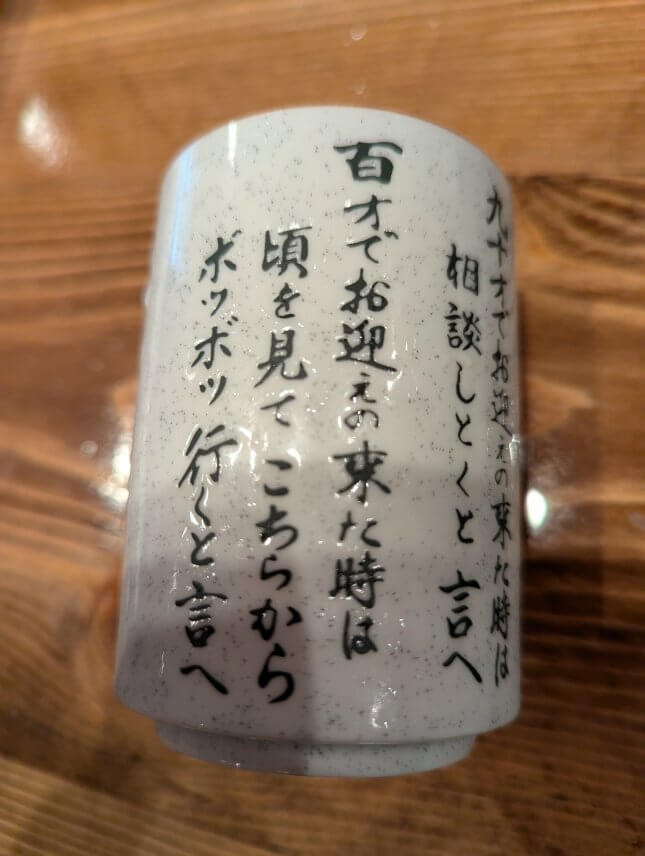 九十才でお迎えの来た時は
相談しとくと言へ
百才でお迎えの来た時は
頃を見てこちらから
ボツボツ行くと言へ